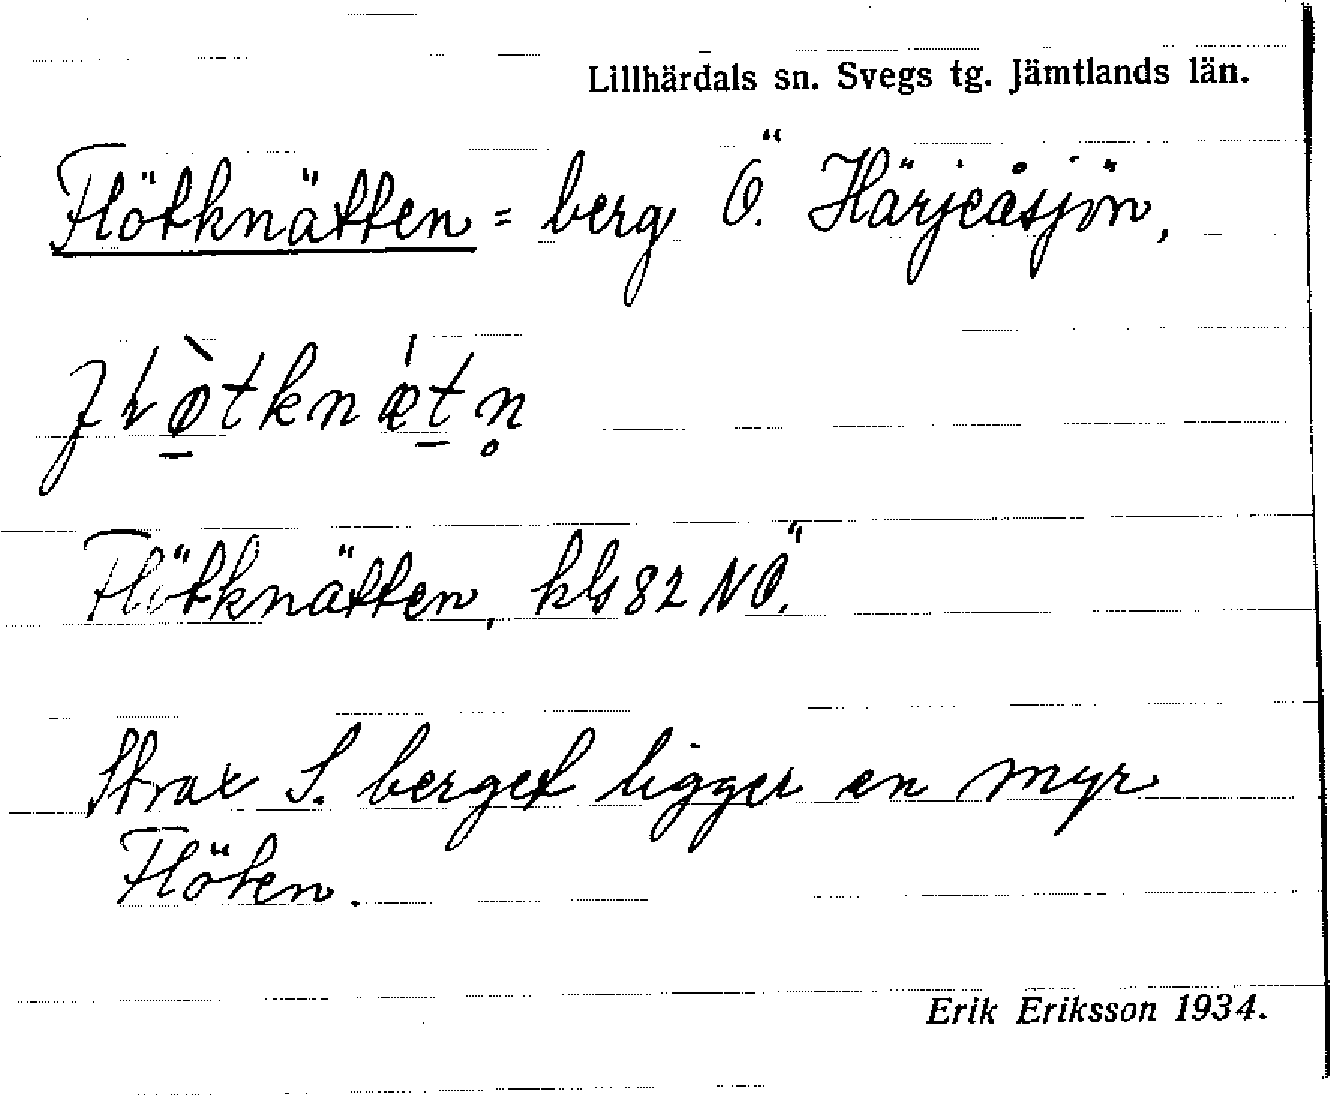 Lillhärdals sn. Svegs tg. Jämtlands län.
Flötknätten = berg Ö. Härjeåsjön,
Flötknätten, kbl 82 NÖ.
Strax S. berget ligger en myr
Flöten.
Erik Eriksson 1934.